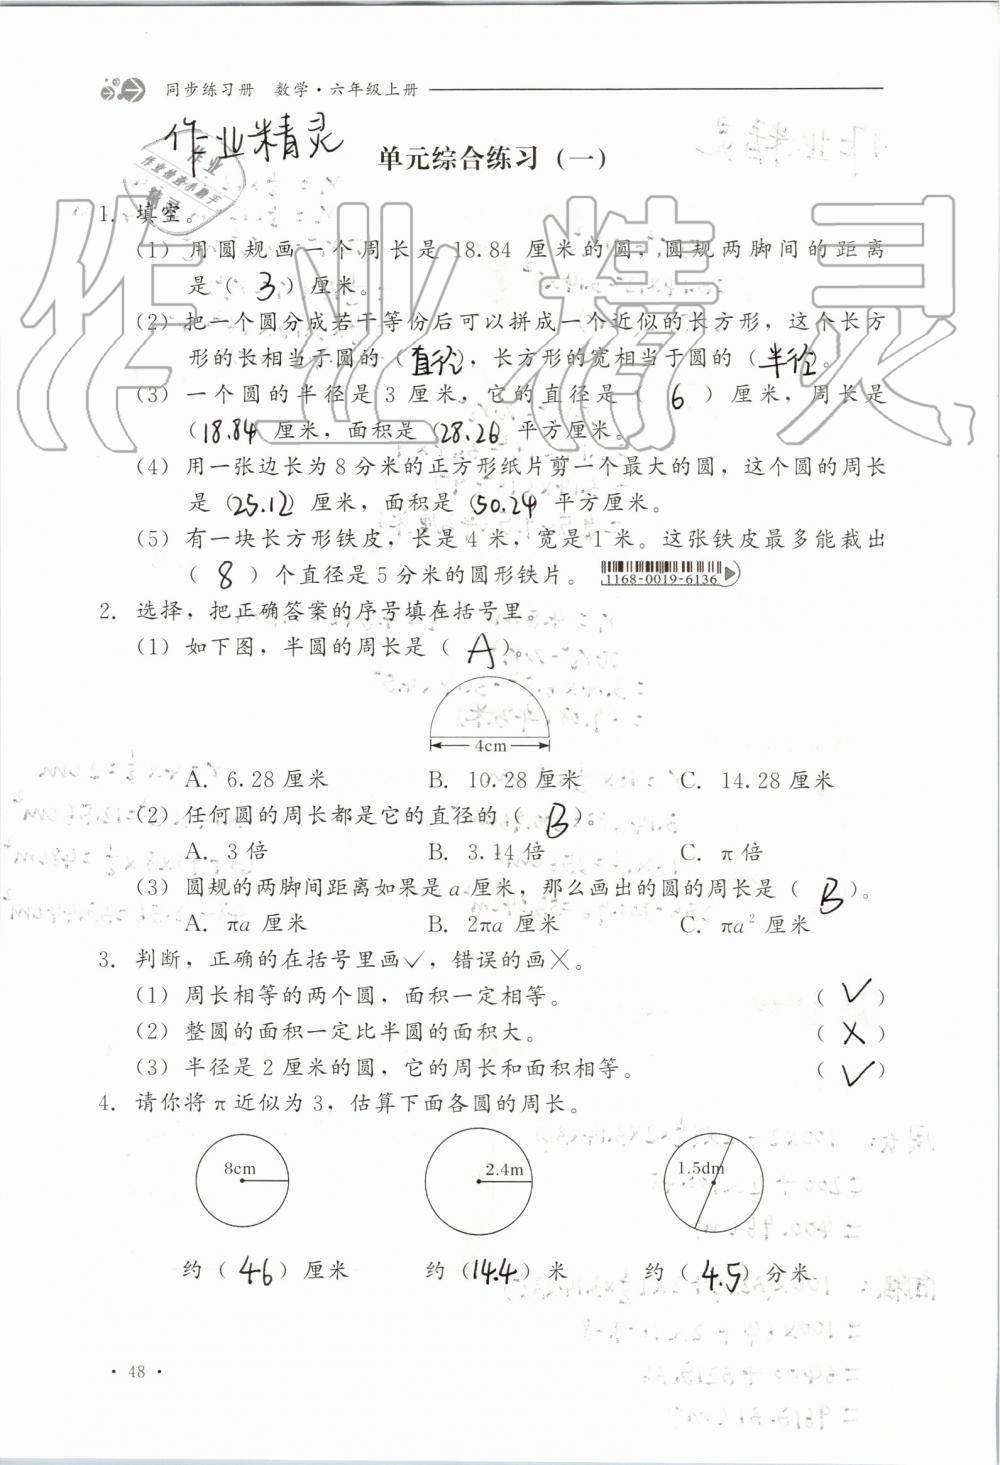 同步练习册 数学·六年级上册
作业精灵
单元综合练习(一)
1. 填空。
(1) 用圆规画一个周长是 18.84 厘米的圆,圆规两脚间的距离
是( 3 )厘米。
(2) 把一个圆分成若干等份后可以拼成一个近似的长方形,这个长方
形的长相当于圆的(直径),长方形的宽相当于圆的(半径)。
(3) 一个圆的半径是 3 厘米,它的直径是( 6 )厘米,周长是
(18.84 厘米,面积是(28.26 平方厘米。
(4) 用一张边长为 8 分米的正方形纸片剪一个最大的圆,这个圆的周长
是(25.12)厘米,面积是(50.24 平方厘米。
(5) 有一块长方形铁皮,长是 4 米,宽是 1 米。这张铁皮最多能裁出
( 8 )个直径是 5 分米的圆形铁片。 1168-0019-6136
2. 选择,把正确答案的序号填在括号里。
(1) 如下图,半圆的周长是( A )。
4cm
A. 6.28 厘米 B. 10.28 厘米 C. 14.28 厘米
(2) 任何圆的周长都是它的直径的( B )。
A. 3 倍 B. 3.14 倍 C. π 倍
(3) 圆规的两脚间距离如果是 a 厘米,那么画出的圆的周长是( B )。
A. πa 厘米 B. 2πa 厘米 C. πa² 厘米
3. 判断,正确的在括号里画✓,错误的画╳。
(1) 周长相等的两个圆,面积一定相等。 ( ✓ )
(2) 整圆的面积一定比半圆的面积大。 ( ╳ )
(3) 半径是 2 厘米的圆,它的周长和面积相等。 ( ✓ )
4. 请你将 π 近似为 3,估算下面各圆的周长。
8cm 2.4m 1.5dm
约( 46 )厘米 约(14.4)米 约( 4.5 )分米
· 48 ·
作业精灵
作业
作业检查小助手
精灵